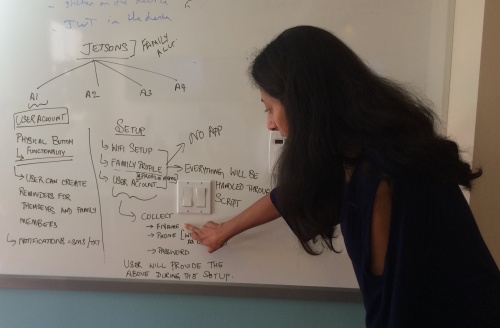 - JWT in the
JETSONS
FAMILY
ACC.
A1
A2
A3
A4
USER ACCOUNT
PHYSICAL BUTTON
↳ FUNCTIONALITY
↳ USER CAN CREATE
REMINDERS FOR
THEMSELVES AND FAMILY
MEMBERS
↳ NOTIFICATIONS
SETUP
↳ WIFI SETUP
↳ FAMILY PROFILE
↳ USER ACCOUNT
NO APP
→ EVERYTHING WILL BE
HANDLED THROUGH
SCRIPT
↳ COLLECT
→ PHONE
→ PASSWORD
USER WILL PROVIDE THE
ABOVE DURING THE SETUP.